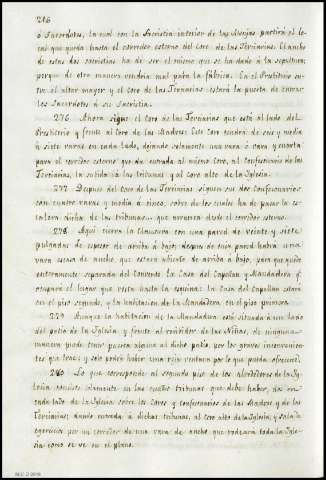 216
ó Sacerdotes, la cual con la Sacristia interior de las Monjas partirá el lo-
cal que queda hasta el corredor esterno del Coro de las Terciarias. El ancho
de estas dos sacristias ha de ser el mismo que se ha dado á la sepultura;
porque de otra manera vendria mal para la fábrica. En el Presbiterio en-
tre el altar mayor y el Coro de las Terciarias estará la puerta de entrar
los Sacerdotes á su Sacristia.
276. Ahora sigue el Coro de las Terciarias que está al lado del
Presbiterio y frente al Coro de las Madres. Este Coro tendrá de seis y media
á siete varas en cada lado, dejando solamente una vara ó vara y cuarta
para el corredor esterno que da entrada al mismo Coro, al Confesonario de las
Terciarias, la subida á las tribunas y al Coro alto de la Iglesia.
277. Despues del Coro de las Terciarias siguen sus dos Confesonarios
con cuatro varas y media á cinco, sobre de los cuales ha de pasar la es-
calera dicha de las tribunas... que arranca desde el corredor esterno.
278. Aqui cierra la Clausura con una pared de veinte y siete
pulgadas de espesor de arriba á bajo; despues de esta pared habrá una
vara escasa de ancho que estará abierto de arriba á bajo, para que quede
enteramente separada del Convento. La Casa del Capellan y Mandadera
ocupará el lugar que resta hasta la esquina: la Casa del Capellan estará
en el piso segundo, y la habitacion de la Mandadera en el piso primero.
279. Aunque la habitacion de la Mandadera está situada á un lado
del patio de la Iglesia y frente al recibidor de las Niñas, de ninguna
manera puede tener puerta alguna al dicho patio, por los graves inconvenien-
tes que trae; y solo podrá haber una reja ventana por lo que pueda ofrecerse.
280. Lo que corresponde al segundo piso de los alrededores de la Ig-
lesia consiste solamente en las cuatro tribunas que debe haber, dos en
cada lado de la Iglesia sobre los Coros y confesonarios de las Madres y de las
Terciarias; dando entrada á dichas tribunas, al Coro alto de la Iglesia, y
por un corredor de una vara de ancho que rodeará toda la Igle-
sia como se ve en el plano.